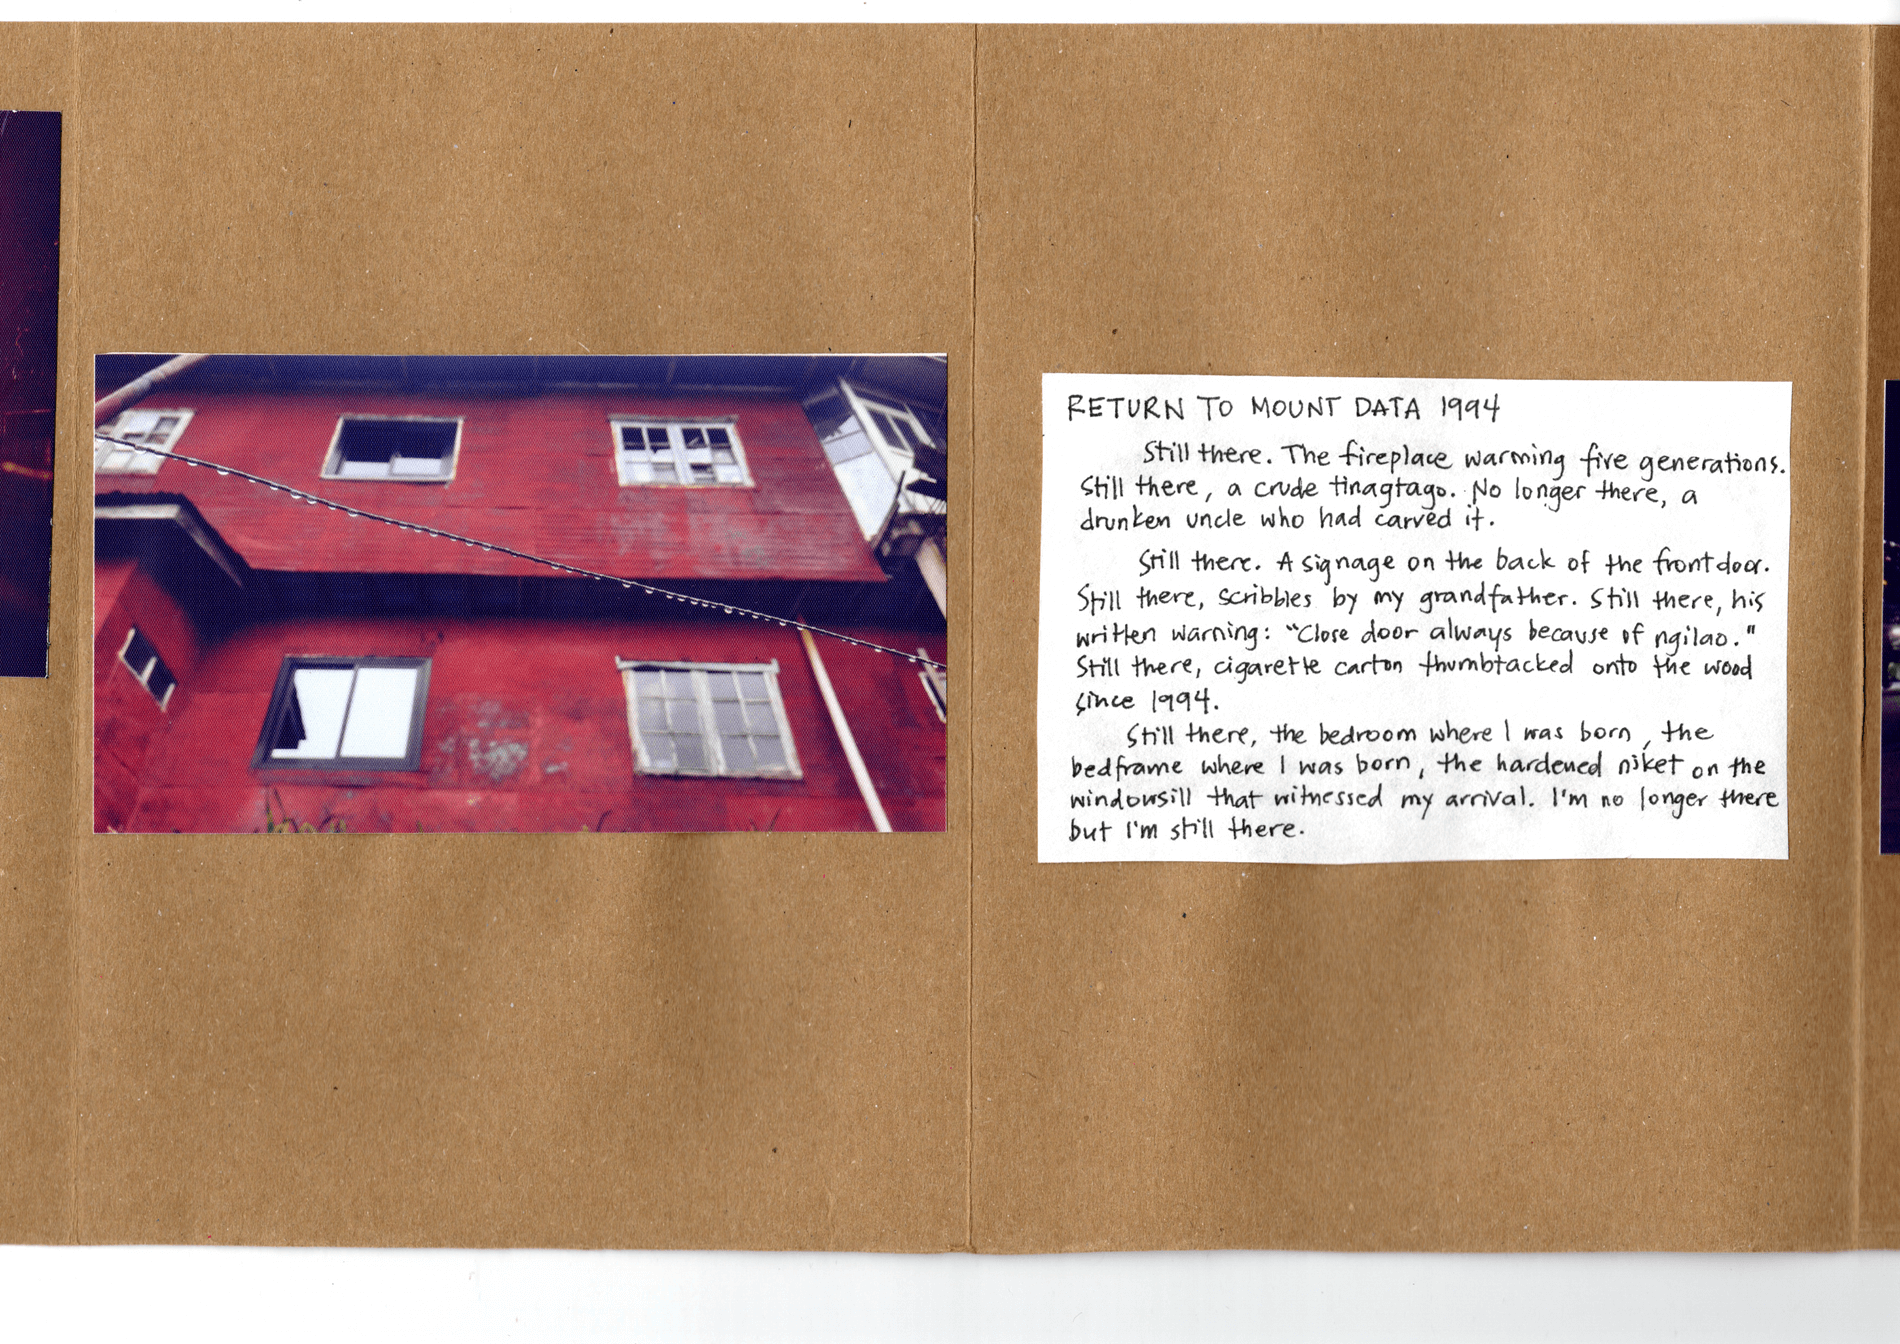 RETURN TO MOUNT DATA 1994
Still there. The fireplace warming five generations.
Still there, a crude tinagtago. No longer there, a
drunken uncle who had carved it.
Still there. A signage on the back of the front door.
Still there, scribbles by my grandfather. Still there, his
written warning: "Close door always because of ngilao."
Still there, cigarette carton thumbtacked onto the wood
since 1994.
Still there, the bedroom where I was born, the
bedframe where I was born, the hardened niket on the
windowsill that witnessed my arrival. I'm no longer there
but I'm still there.